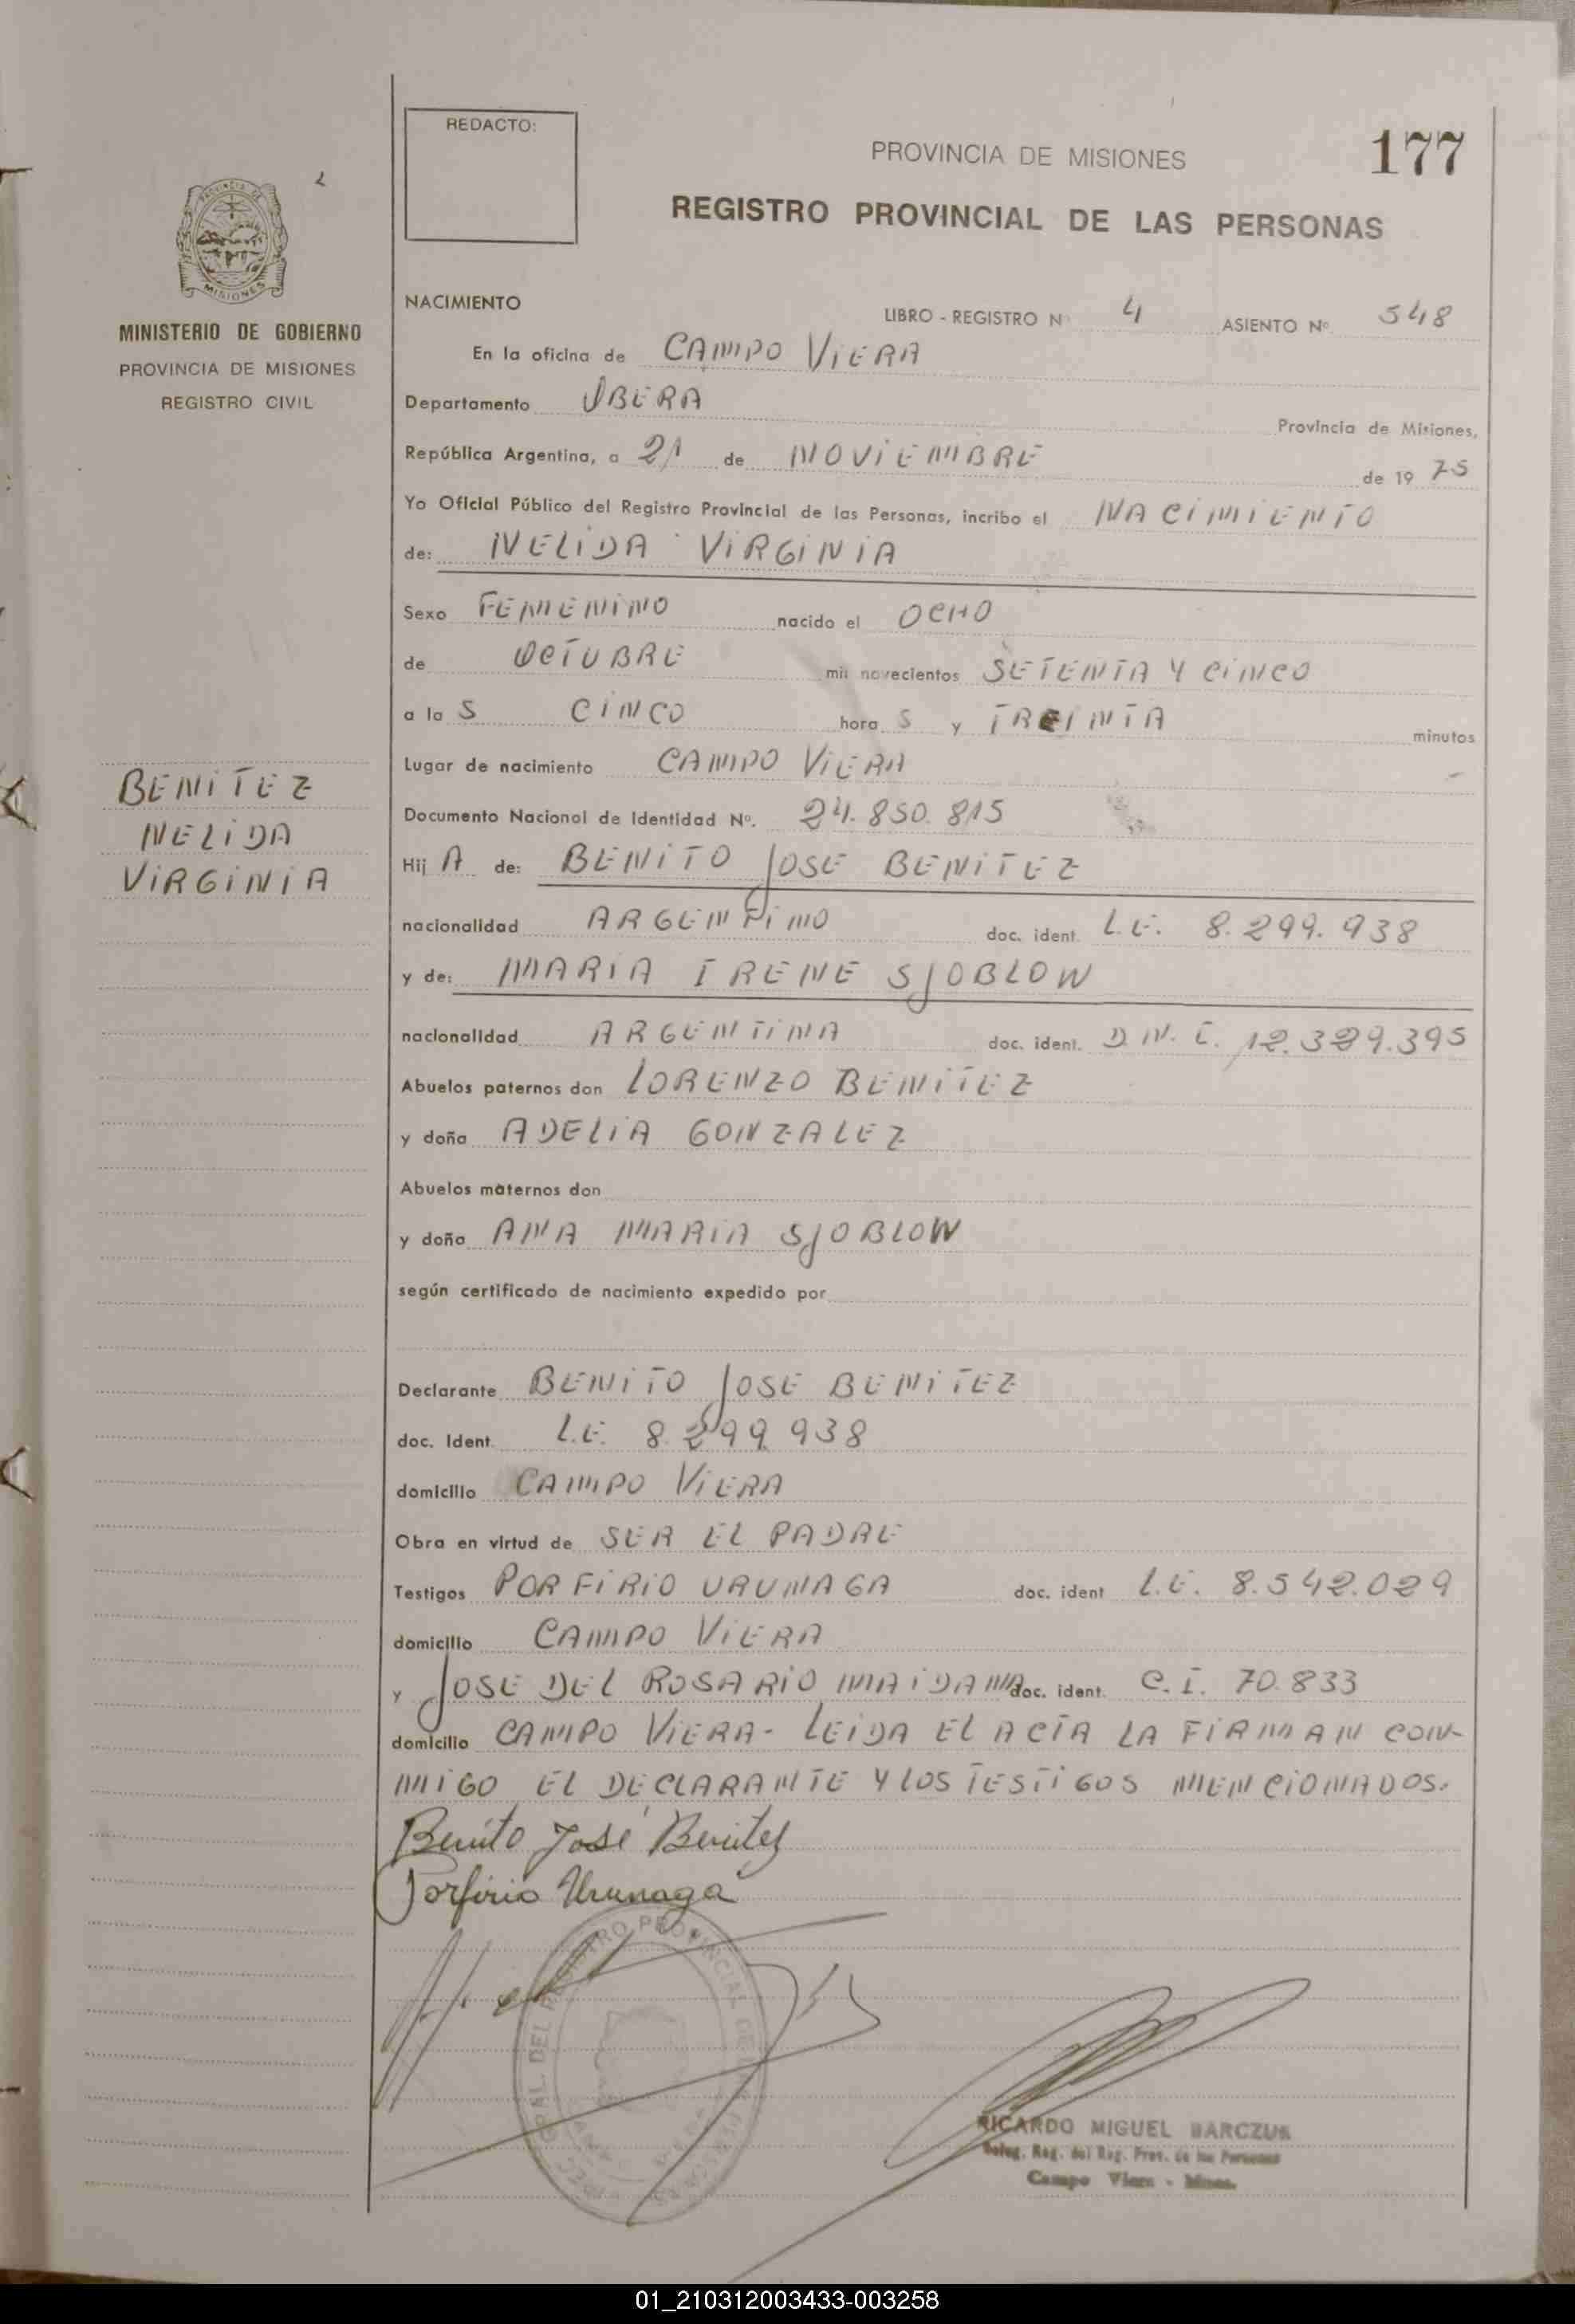 REDACTO:
PROVINCIA DE MISIONES
177
REGISTRO PROVINCIAL DE LAS PERSONAS
PROVINCIA DE
MISIONES
MINISTERIO DE GOBIERNO
PROVINCIA DE MISIONES
REGISTRO CIVIL
BENITEZ
NELIDA
VIRGINIA
NACIMIENTO
LIBRO - REGISTRO Nº 4 ASIENTO Nº 548
En la oficina de CAMPO VIERA
Departamento OBERA
Provincia de Misiones,
República Argentina, a 21 de NOVIEMBRE de 19 75
Yo Oficial Público del Registro Provincial de las Personas, incribo el NACIMIENTO
de: NELIDA VIRGINIA
Sexo FEMENINO nacido el OCHO
de OCTUBRE mil novecientos SETENTA Y CINCO
a la S CINCO hora S y TREINTA minutos
Lugar de nacimiento CAMPO VIERA
Documento Nacional de Identidad Nº. 24.850.815
Hij A de: BENITO JOSE BENITEZ
nacionalidad ARGENTINO doc. ident. L.E. 8.299.938
y de: MARIA IRENE SJOBLOW
nacionalidad ARGENTINA doc. ident. D.N.I. 12.329.395
Abuelos paternos don LORENZO BENITEZ
y doña ADELIA GONZALEZ
Abuelos maternos don
y doña ANA MARIA SJOBLOW
según certificado de nacimiento expedido por
Declarante BENITO JOSE BENITEZ
doc. Ident. L.E. 8.299.938
domicilio CAMPO VIERA
Obra en virtud de SER EL PADRE
Testigos PORFIRIO URUNAGA doc. ident L.E. 8.542.029
domicilio CAMPO VIERA
y JOSE DEL ROSARIO MAIDANA doc. ident. C.I. 70.833
domicilio CAMPO VIERA- LEIDA EL ACTA LA FIRMAN CON-
MIGO EL DECLARANTE Y LOS TESTIGOS MENCIONADOS.
Benito José Benitez
Porfirio Urunaga
REGISTRO PROVINCIAL DE
RICARDO MIGUEL BARCZUK
Deleg. Reg. del Reg. Prov. de las Personas
Campo Viera - Mnes.
01_210312003433-003258